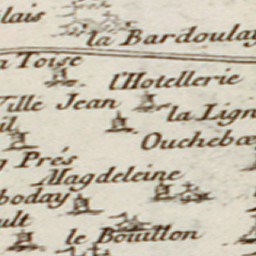 lais
la Bardoulay
a Toise
l'Hotellerie
Ville Jean
la Lign
il
Oucheba
g Prés
Magdeleine
boday
ult
le Bouillon